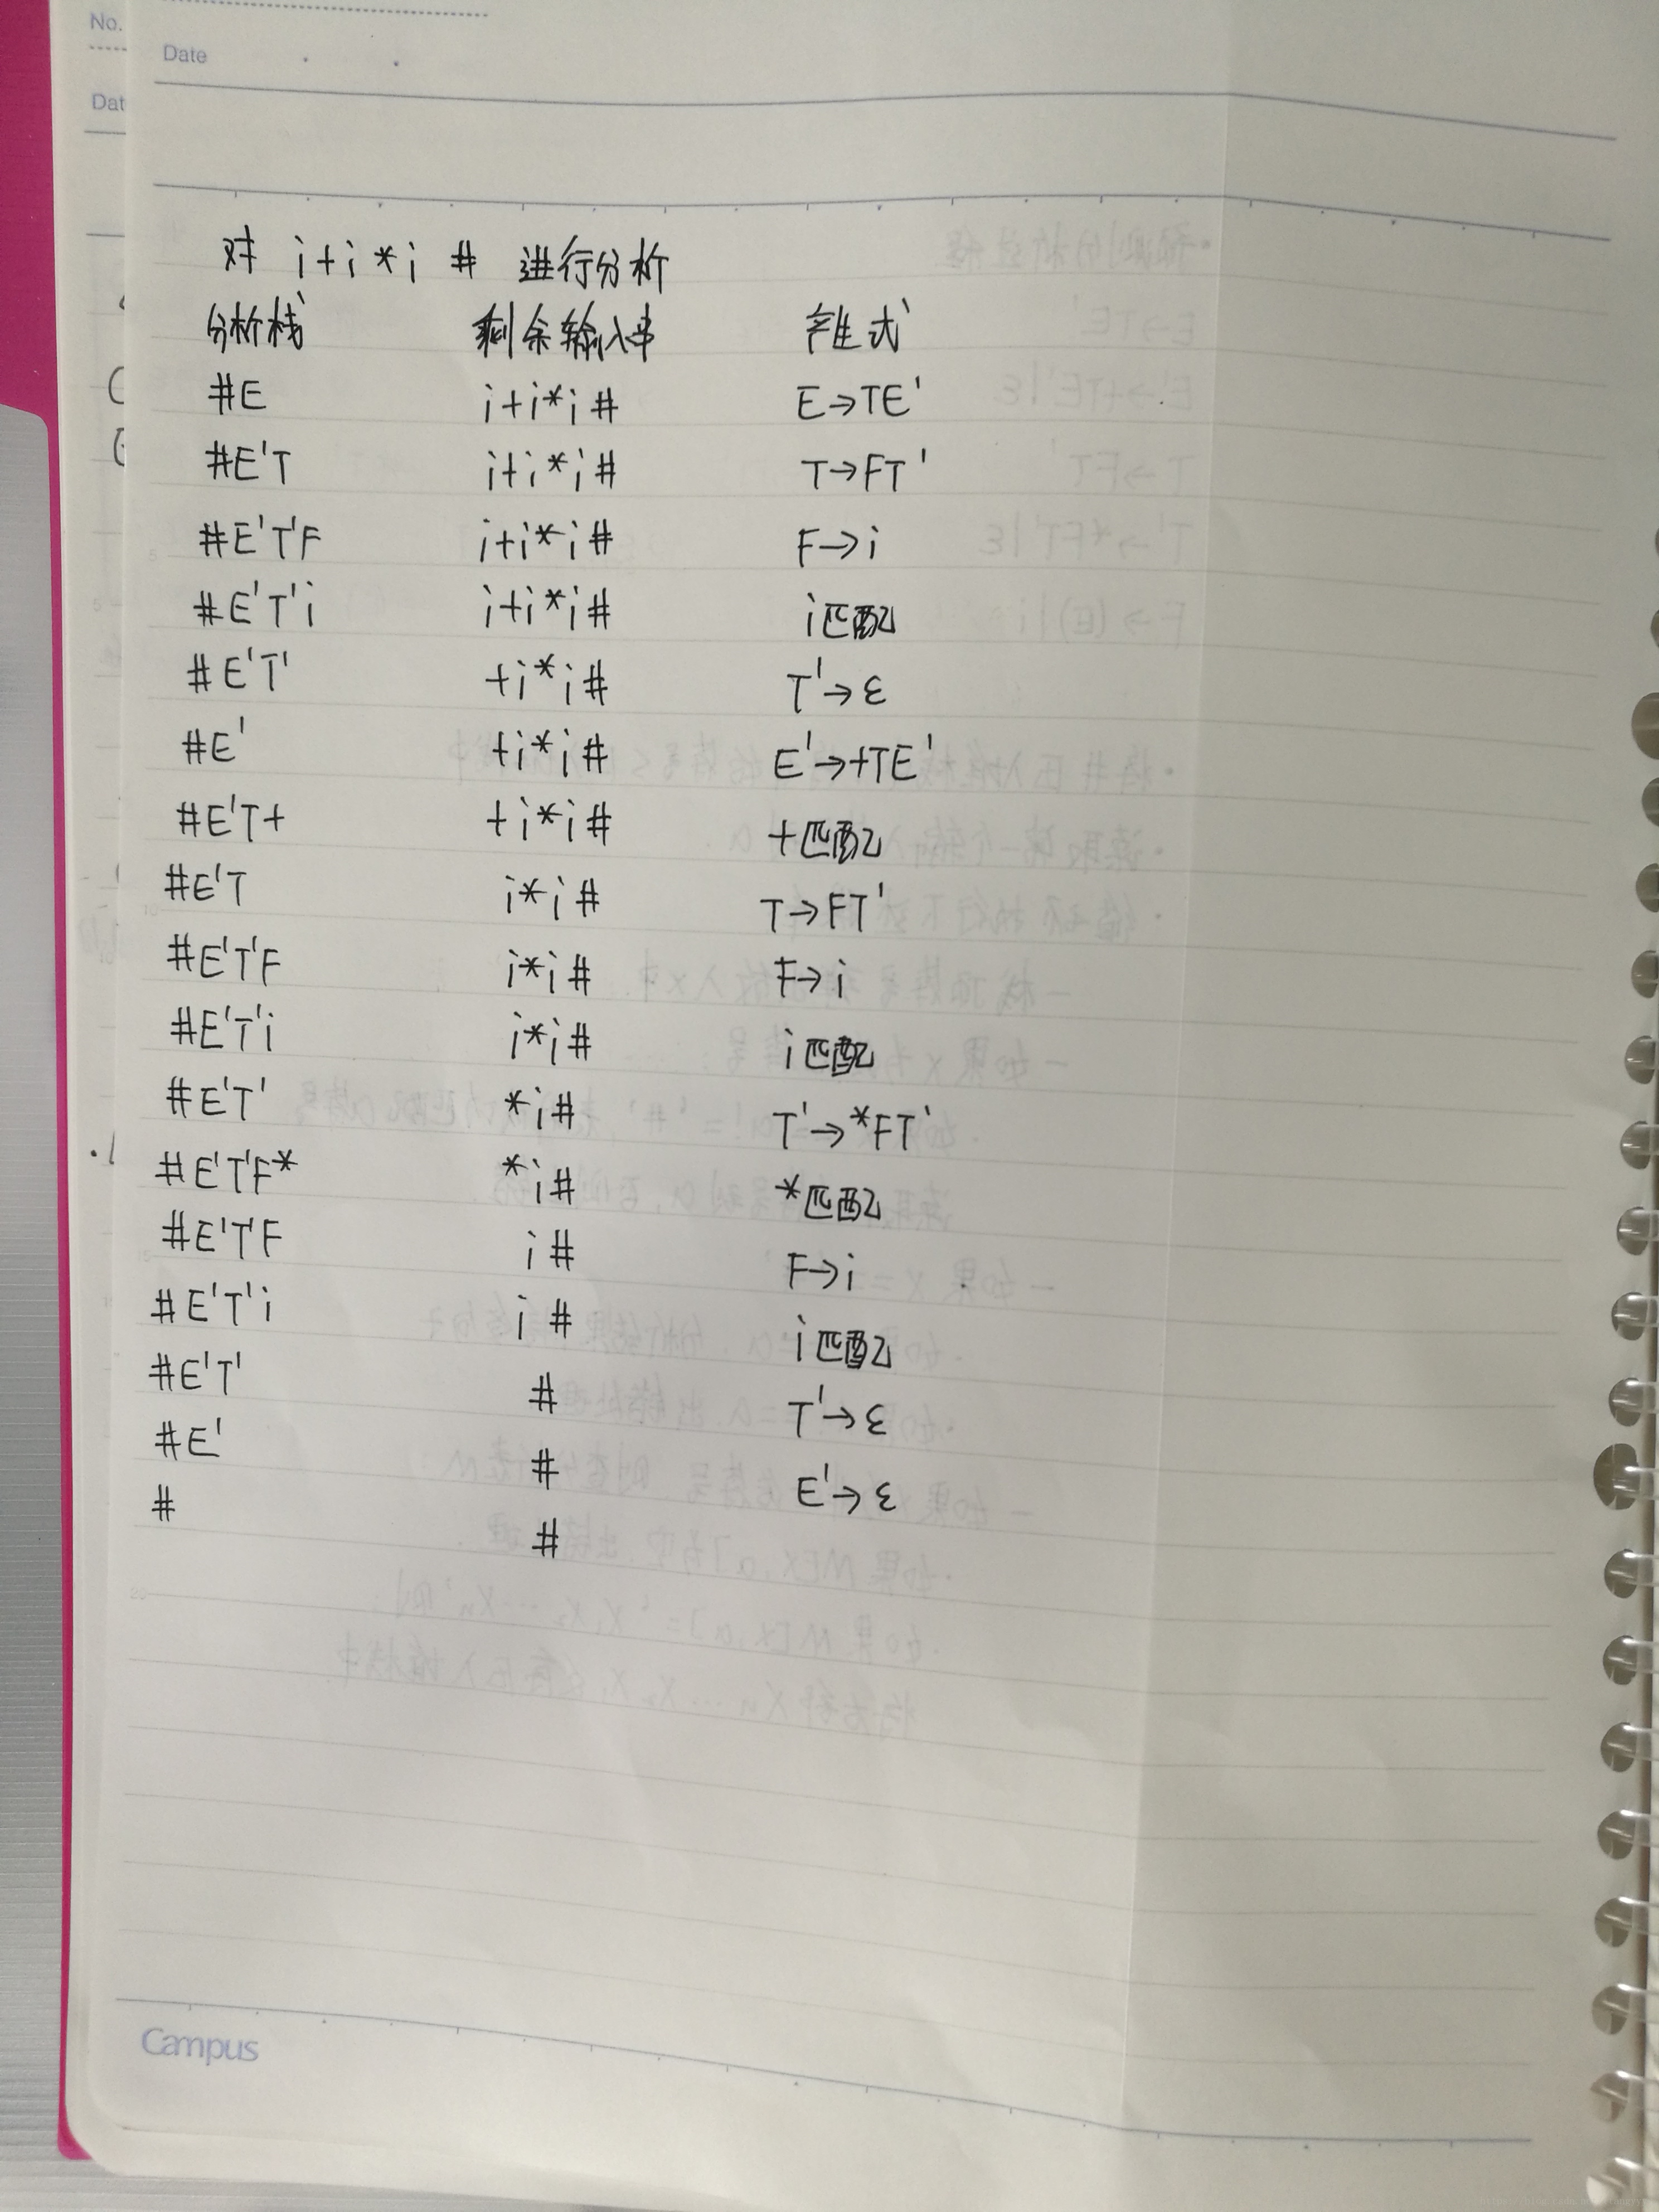 No.
Date
Dat
对 i+i*i # 进行分析
分析栈 剩余输入串 产生式
#E i+i*i# E→TE'
#E'T i+i*i# T→FT'
#E'T'F i+i*i# F→i
#E'T'i i+i*i# i匹配
#E'T' +i*i# T'→ε
#E' +i*i# E'→+TE'
#E'T+ +i*i# +匹配
#E'T i*i# T→FT'
#E'T'F i*i# F→i
#E'T'i i*i# i匹配
#E'T' *i# T'→*FT'
#E'T'F* *i# *匹配
#E'T'F i# F→i
#E'T'i i# i匹配
#E'T' # T'→ε
#E' # E'→ε
# #
Campus